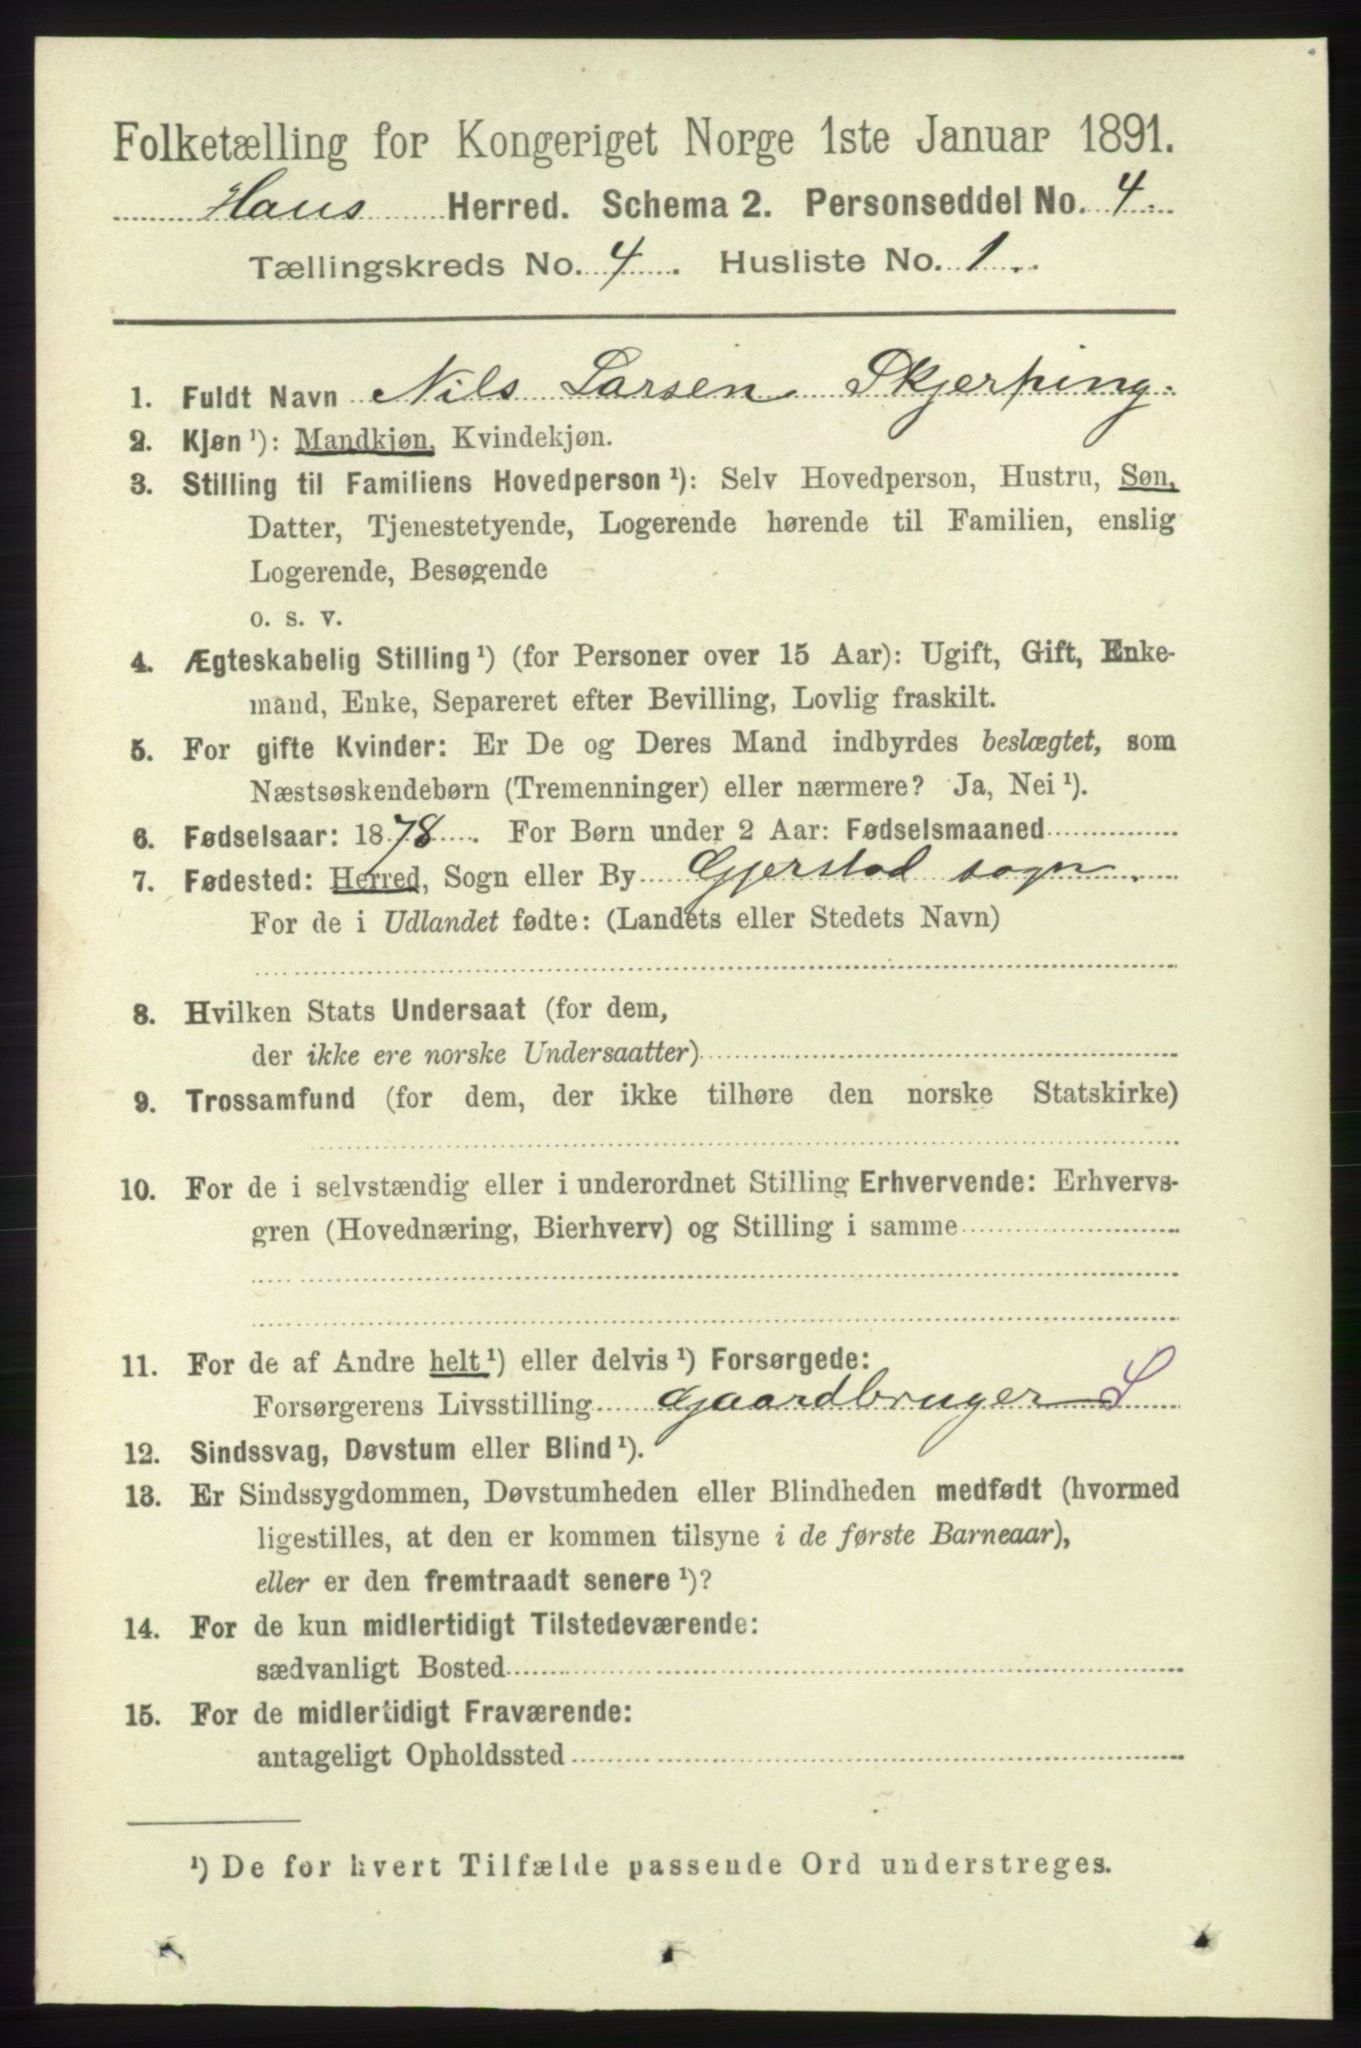 Folketælling for Kongeriget Norge 1ste Januar 1891.
Haus Herred. Schema 2. Personseddel No. 4.
Tællingskreds No. 4. Husliste No. 1.
1. Fuldt Navn Nils Larsen Skjerping.
2. Kjøn ¹): Mandkjøn, Kvindekjøn.
3. Stilling til Familiens Hovedperson ¹): Selv Hovedperson, Hustru, Søn,
Datter, Tjenestetyende, Logerende hørende til Familien, enslig
Logerende, Besøgende
o. s. v.
4. Ægteskabelig Stilling ¹) (for Personer over 15 Aar): Ugift, Gift, Enke-
mand, Enke, Separeret efter Bevilling, Lovlig fraskilt.
5. For gifte Kvinder: Er De og Deres Mand indbyrdes beslægtet, som
Næstsøskendebørn (Tremenninger) eller nærmere? Ja, Nei ¹).
6. Fødselsaar: 1878. For Børn under 2 Aar: Fødselsmaaned
7. Fødested: Herred, Sogn eller By Gjerstad sogn.
For de i Udlandet fødte: (Landets eller Stedets Navn)
8. Hvilken Stats Undersaat (for dem,
der ikke ere norske Undersaatter)
9. Trossamfund (for dem, der ikke tilhøre den norske Statskirke)
10. For de i selvstændig eller i underordnet Stilling Erhvervende: Erhvervs-
gren (Hovednæring, Bierhverv) og Stilling i samme
11. For de af Andre helt ¹) eller delvis ¹) Forsørgede:
Forsørgerens Livsstilling Gaardbruger S
12. Sindssvag, Døvstum eller Blind ¹).
13. Er Sindssygdommen, Døvstumheden eller Blindheden medfødt (hvormed
ligestilles, at den er kommen tilsyne i de første Barneaar),
eller er den fremtraadt senere ¹)?
14. For de kun midlertidigt Tilstedeværende:
sædvanligt Bosted
15. For de midlertidigt Fraværende:
antageligt Opholdssted
¹) De for hvert Tilfælde passende Ord understreges.